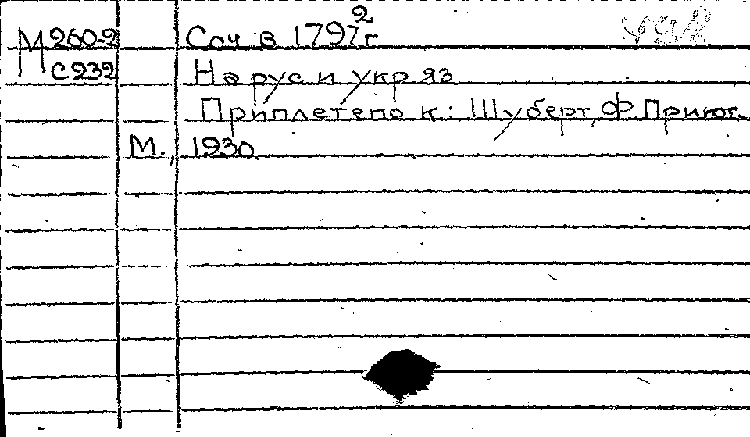 М 260-2 Соч в 1797 г
2
С232 На рус и укр яз
Приплетено к: Шуберт, Ф
М., 1930